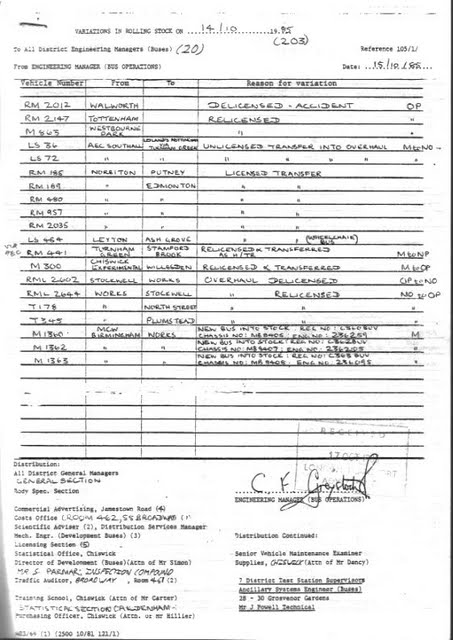 VARIATIONS IN ROLLING STOCK ON 14/10 1985
(203)
To All District Engineering Managers (Buses) (20) Reference 105/1/
From ENGINEERING MANAGER (BUS OPERATIONS) Date: 15/10/85
Vehicle Number From To Reason for variation
RM 2012 WALWORTH DELICENSED - ACCIDENT OP
RM 2147 TOTTENHAM RELICENSED "
M 863 WESTBOURNE PARK " "
LS 36 AEC SOUTHALL TURNHAM GREEN UNLICENSED TRANSFER INTO OVERHAUL M to NO
LS 72 " " " " " " "
RM 185 NORBITON PUTNEY LICENSED TRANSFER
RM 169 " EDMONTON " "
RM 480 " " " "
RM 957 " " " "
RM 2035 " " " "
LS 454 LEYTON ASH GROVE " " (WHEELCHAIR BUS)
RM 441 TURNHAM GREEN STAMFORD BROOK RELICENSED & TRANSFERRED AS H/TR M to NO
M 300 CHISWICK EXPERIMENTAL WILLESDEN RELICENSED & TRANSFERRED M to OP
RML 2602 STOCKWELL WORKS OVERHAUL DELICENSED OP to NO
RML 2644 WORKS STOCKWELL " RELICENSED NO to OP
T 178 " NORTH STREET " " "
T 345 " PLUMSTEAD " " "
M 1360 MCW BIRMINGHAM WORKS NEW BUS INTO STOCK: REG NO: C360BUV M
CHASSIS NO: MB8405: ENG NO: 236259
M 1362 " " NEW BUS INTO STOCK: REG NO: C362BUV "
CHASSIS NO: MB8407: ENG NO: 236205
M 1363 " " NEW BUS INTO STOCK: REG NO: C363BUV "
CHASSIS NO: MB8408: ENG NO: 236095
RECEIVED
17 OCT
Distribution:
All District General Managers
GENERAL SECTION
Body Spec. Section
ENGINEERING MANAGER (BUS OPERATIONS)
Commercial Advertising, Jamestown Road (4)
Costs Office (ROOM 462, 55 BROADWAY (1)
Scientific Adviser (2), Distribution Services Manager
Mech. Engr. (Development Buses) (3) Distribution Continued:
Licensing Section (5)
Statistical Office, Chiswick Senior Vehicle Maintenance Examiner
Director of Development (Buses)(Attn of Mr Simon) Supplies, CHISWICK (Attn of Mr Dancy)
MR S. PARMAR, INSPECTION COMPOUND
Traffic Auditor, BROADWAY, ROOM 467 (2) 7 District Test Station Supervisors
Ancillary Systems Engineer (Buses)
Training School, Chiswick (Attn of Mr Carter) 28 - 30 Grosvenor Gardens
STATISTICAL SECTION (ALDENHAM) Mr J Powell Technical
Purchasing Officer, Chiswick (Attn. of Mr Hillier)
(1) (2500 10/81 121/1)